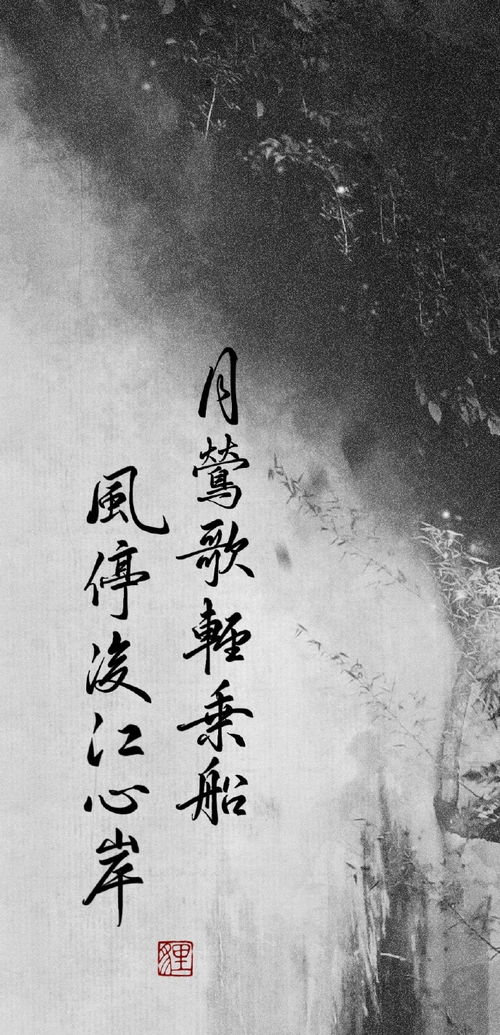 月鶯歌輕乘船
風停浚江心岸
狸